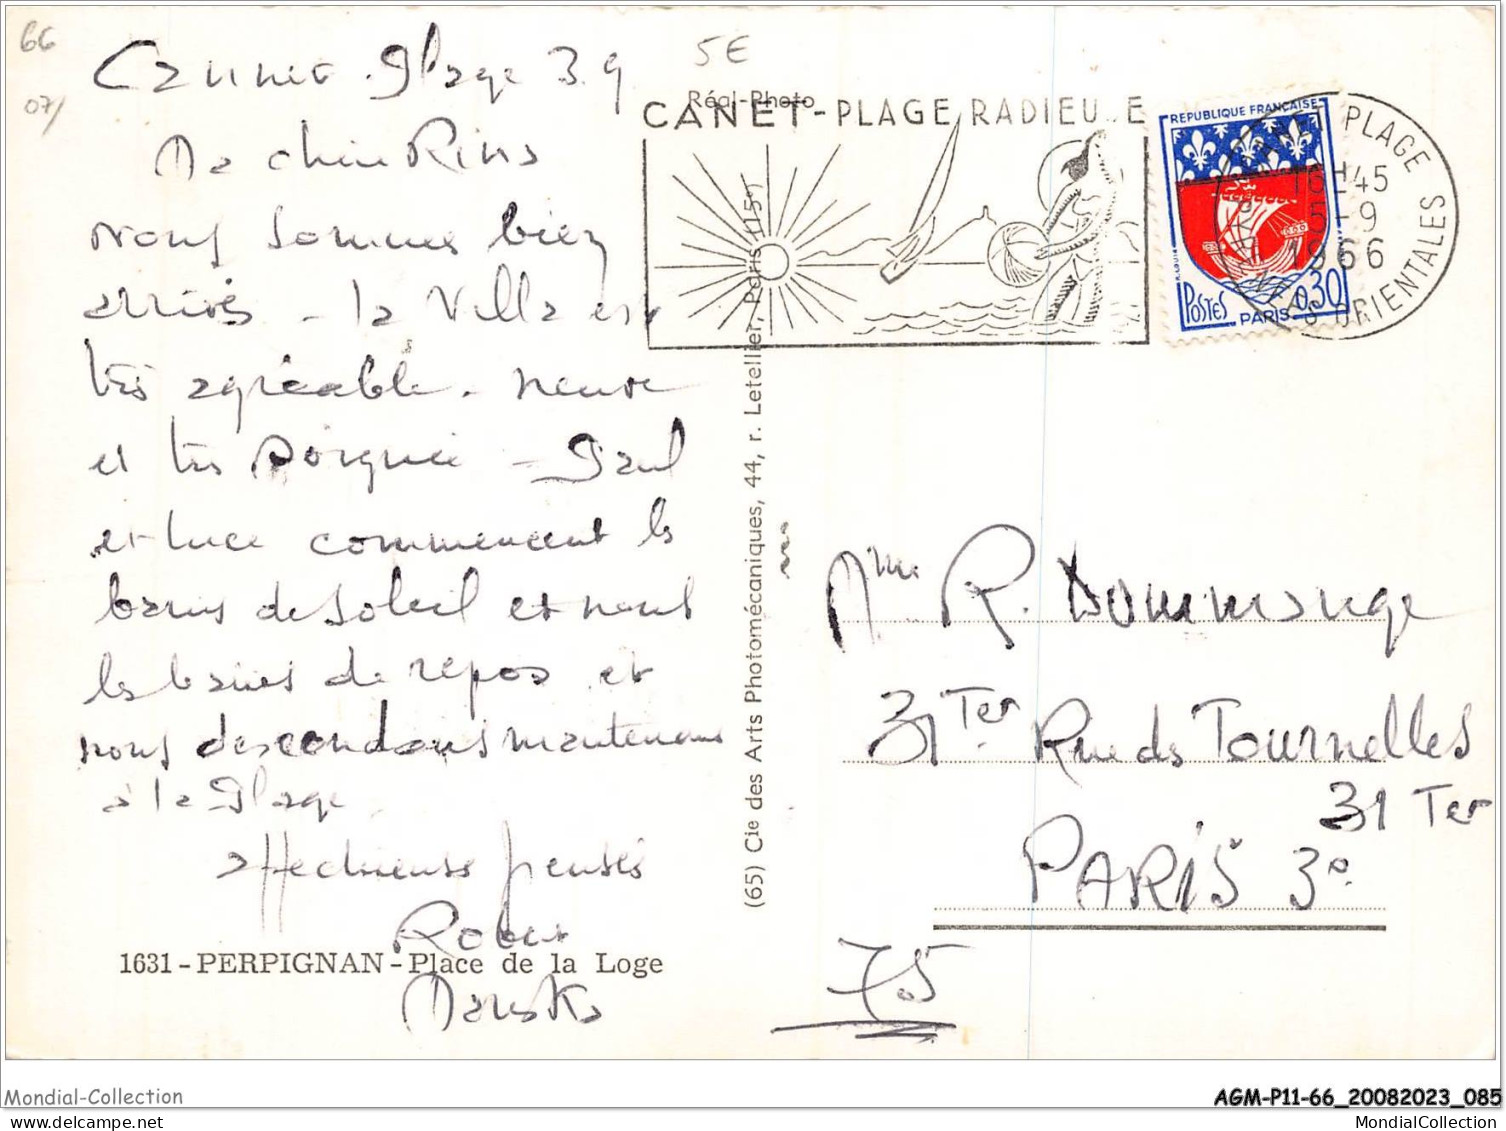 66
07/
5€
Cannet Plage 3.9
Ma chère
nous sommes bien
arrivés - la Villa est
très agréable. neuve
et très soignée - Paul
et Luce commencent les
bains de soleil et nous
les bains de repos et
nous descendons maintenant
à la Plage.
affectueuses pensées
Robert
1631 - PERPIGNAN - Place de la Loge
Réal-Photo
CANET-PLAGE RADIEU E
REPUBLIQUE FRANÇAISE
POSTES 0,30
PARIS
CANET PLAGE
16H45
5-9
1966
PYRENEES ORIENTALES
(65) Cie des Arts Photomécaniques, 44, r. Letellier, Paris (15e)
Mme R. Dommange
31 Ter Rue des Tournelles
31 Ter
PARIS 3e
75
Mondial-Collection
AGM-P11-66_20082023_085
MondialCollection